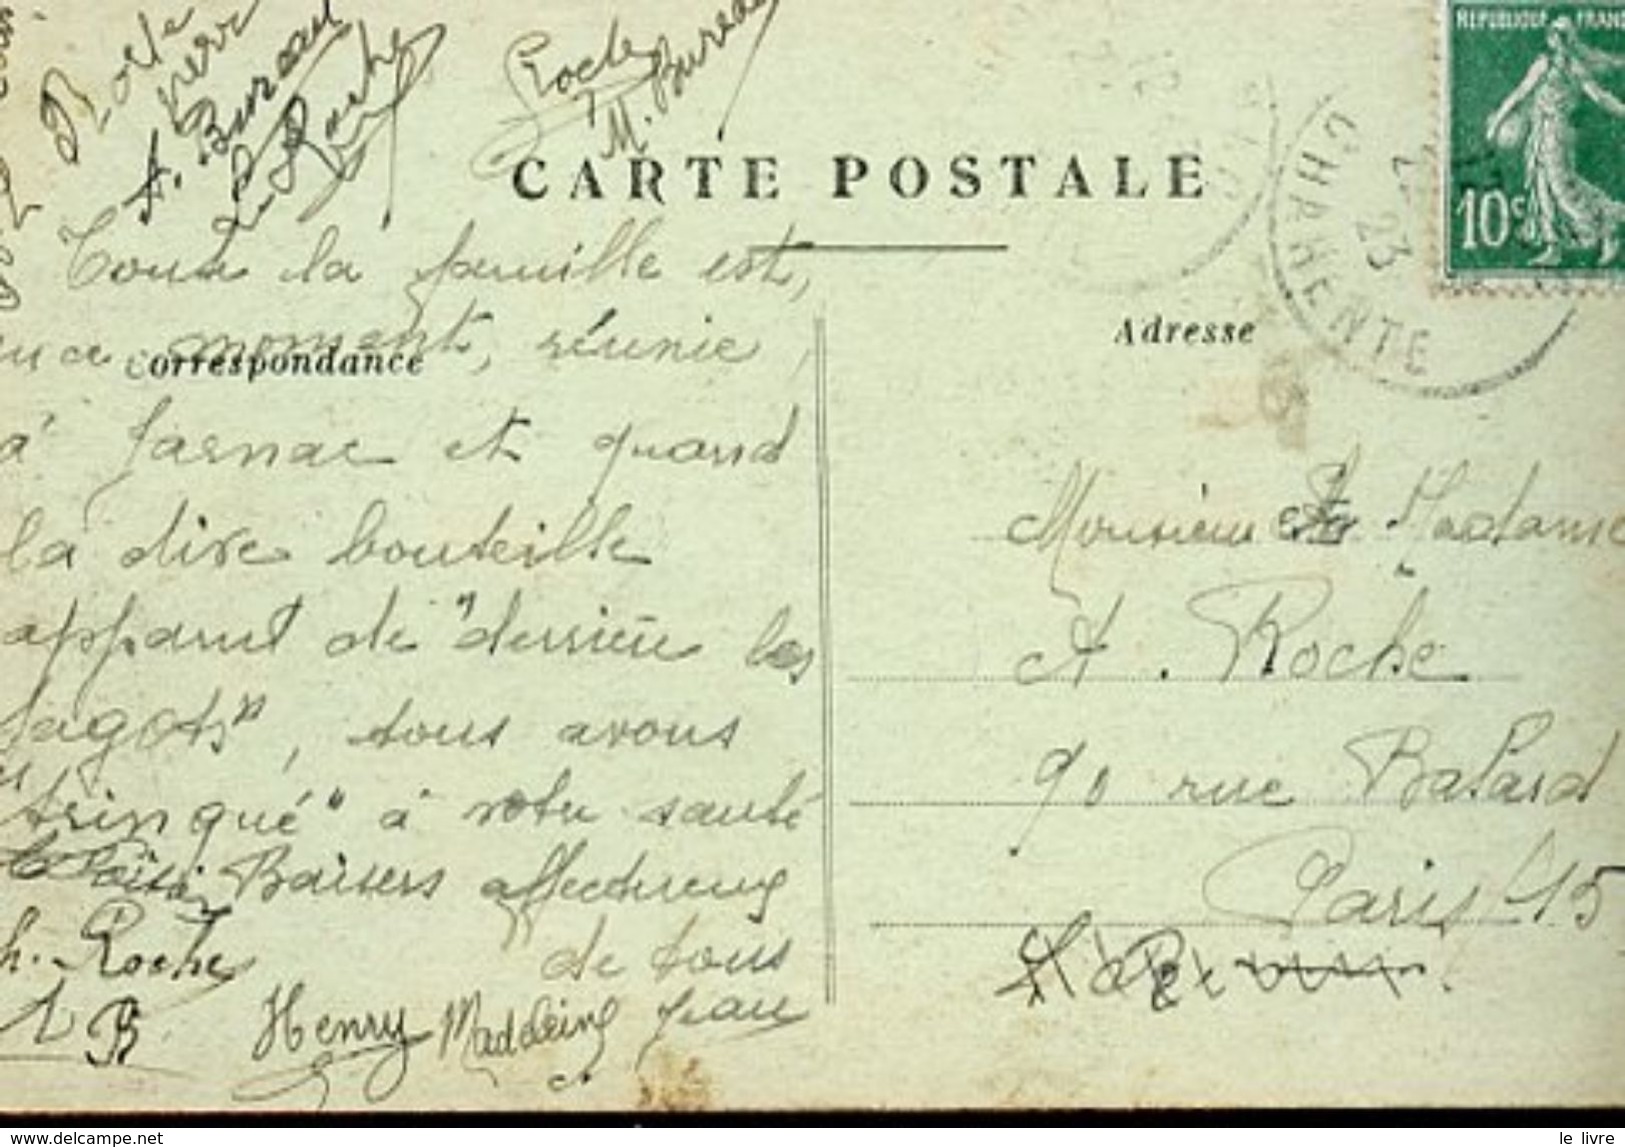 Roche
Pierre
A. Bureau
L. Roche
Roche
M. Bureau
CARTE POSTALE
REPUBLIQUE FRANC
10c
CHARENTE
23
Correspondance
Adresse
Toute la famille est,
en ce moment, réunie,
à Jarnac et quand
la dive bouteille
apparut de "derrière les
fagots", tous avons
"trinqué" à votre santé
Baisers affectueux
de tous
h. Roche
B
Henry Madeleine Jean
Monsieur et Madame
A. Roche
90 rue Balard
Paris 15
delcampe.net
le livre